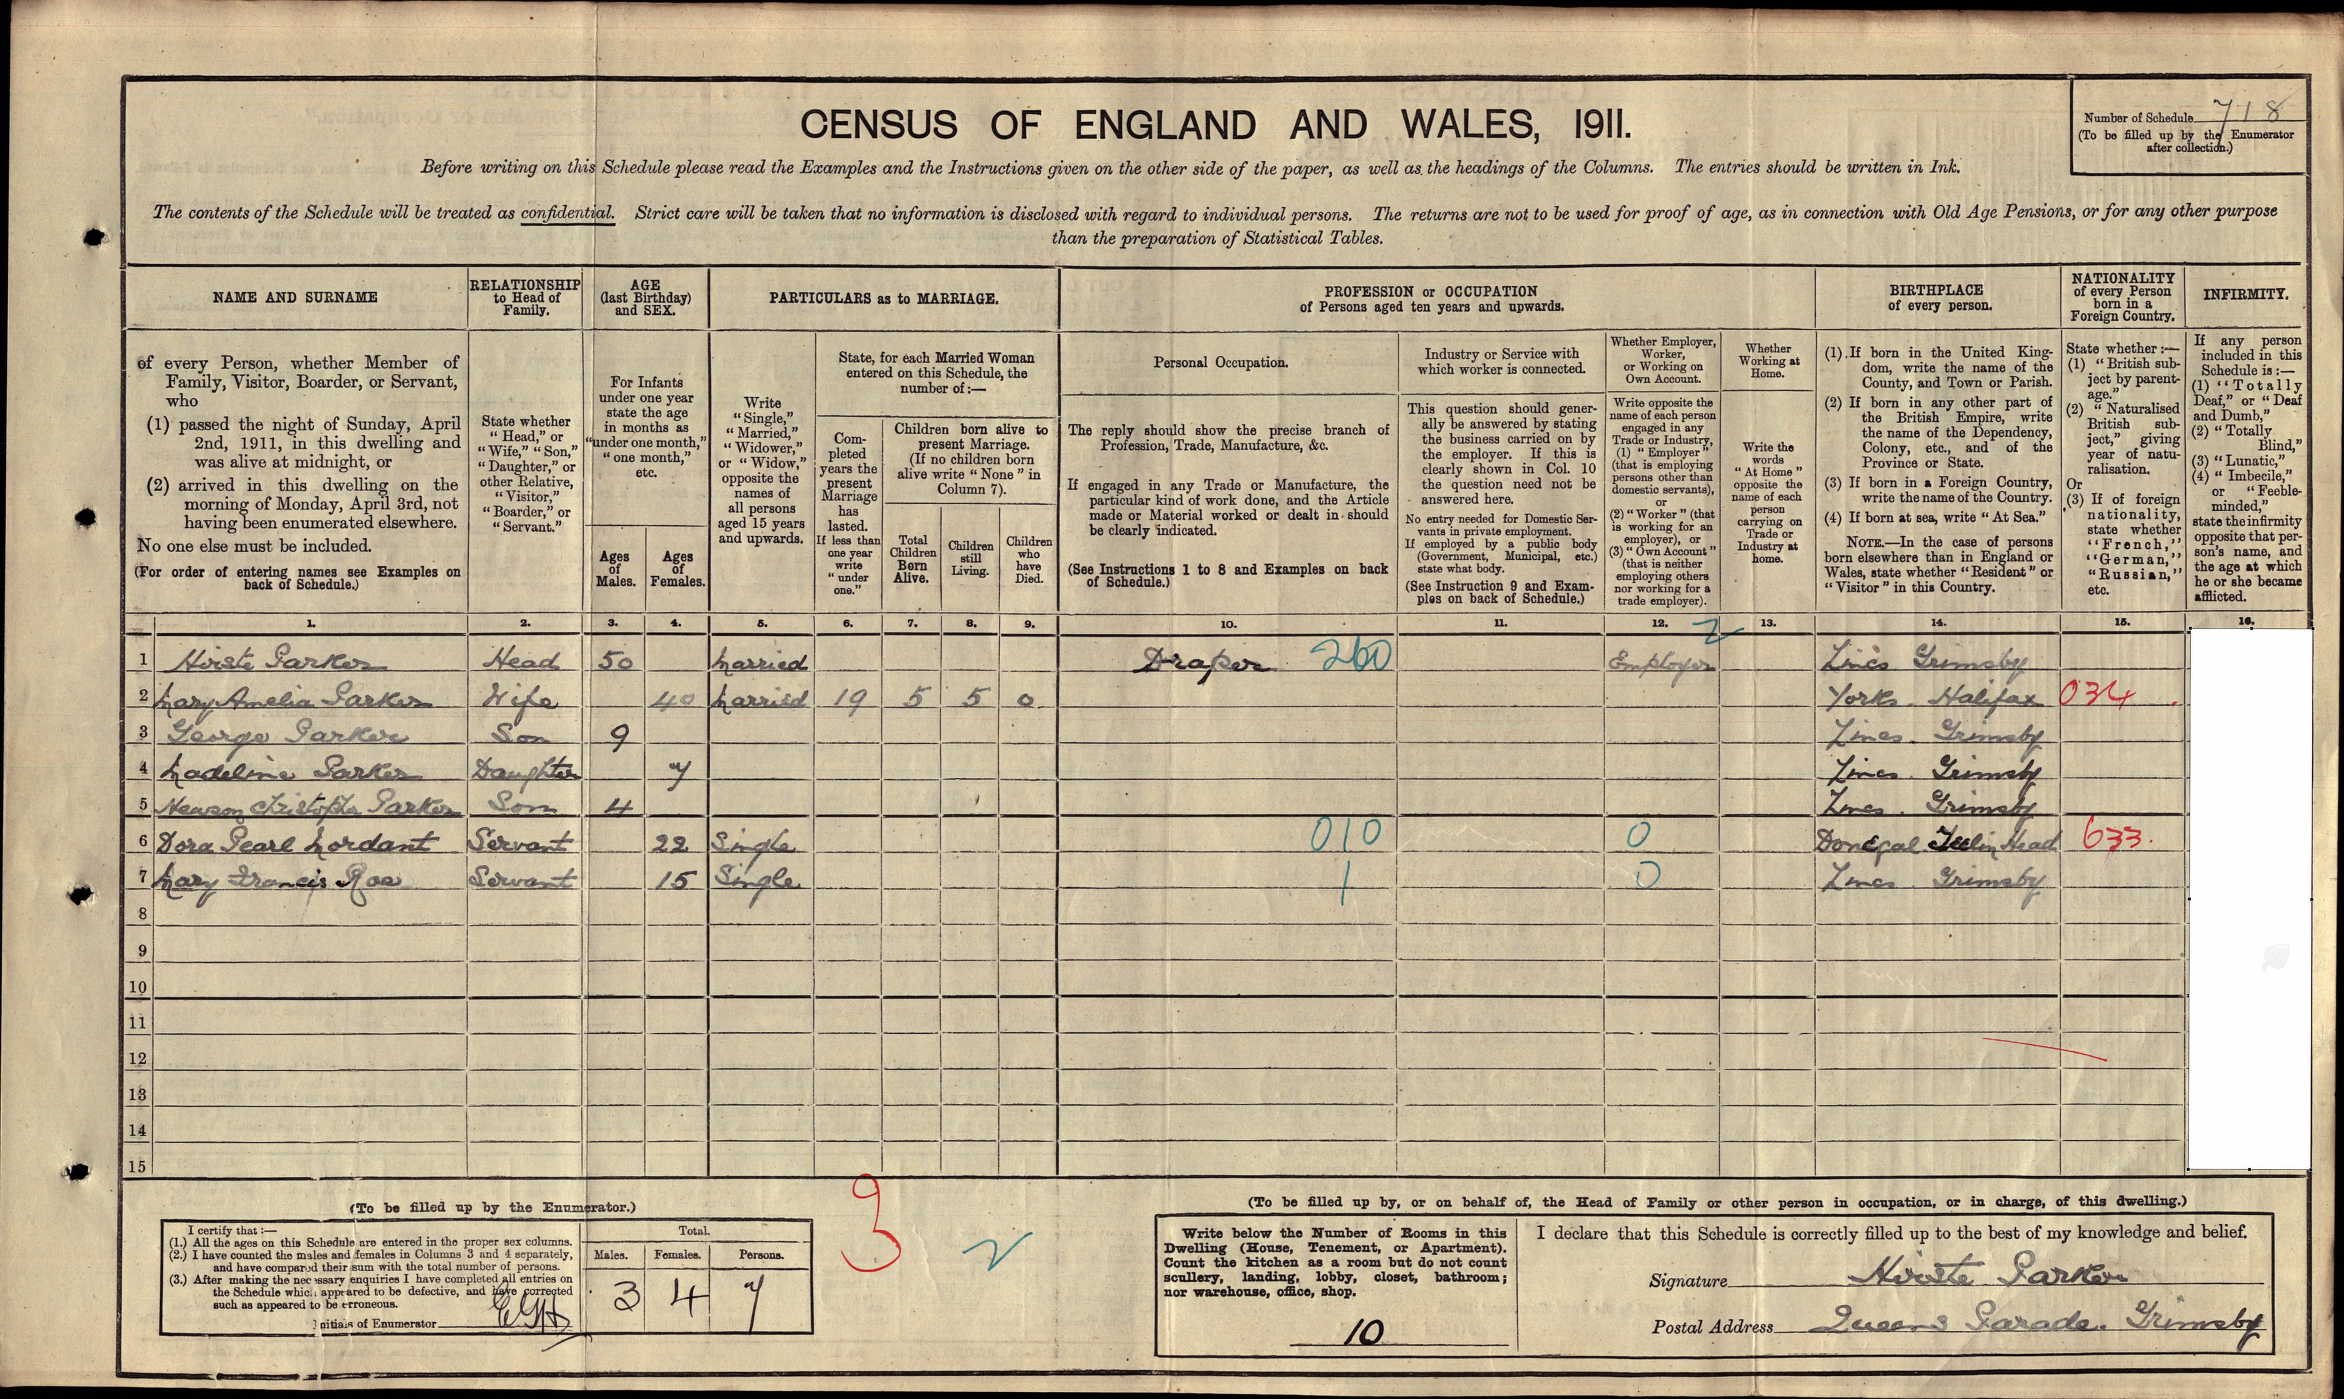 CENSUS OF ENGLAND AND WALES, 1911.
Number of Schedule 718
(To be filled up by the Enumerator
after collection.)
Before writing on this Schedule please read the Examples and the Instructions given on the other side of the paper, as well as the headings of the Columns. The entries should be written in Ink.
The contents of the Schedule will be treated as confidential. Strict care will be taken that no information is disclosed with regard to individual persons. The returns are not to be used for proof of age, as in connection with Old Age Pensions, or for any other purpose
than the preparation of Statistical Tables.
NAME AND SURNAME
of every Person, whether Member of
Family, Visitor, Boarder, or Servant,
who
(1) passed the night of Sunday, April
2nd, 1911, in this dwelling and
was alive at midnight, or
(2) arrived in this dwelling on the
morning of Monday, April 3rd, not
having been enumerated elsewhere.
No one else must be included.
(For order of entering names see Examples on
back of Schedule.)
RELATIONSHIP
to Head of
Family.
State whether
"Head," or
"Wife," "Son,"
"Daughter," or
other Relative,
"Visitor,"
"Boarder," or
"Servant."
AGE
(last Birthday)
and SEX.
For Infants
under one year
state the age
in months as
"under one month,"
"one month,"
etc.
Ages
of
Males.
Ages
of
Females.
PARTICULARS as to MARRIAGE.
Write
"Single,"
"Married,"
"Widower,"
or "Widow,"
opposite the
names of
all persons
aged 15 years
and upwards.
State, for each Married Woman
entered on this Schedule, the
number of:—
Com-
pleted
years the
present
Marriage
has
lasted.
If less than
one year
write
"under
one."
Children born alive to
present Marriage.
(If no children born
alive write "None" in
Column 7).
Total
Children
Born
Alive.
Children
still
Living.
Children
who
have
Died.
PROFESSION or OCCUPATION
of Persons aged ten years and upwards.
Personal Occupation.
The reply should show the precise branch of
Profession, Trade, Manufacture, &c.
If engaged in any Trade or Manufacture, the
particular kind of work done, and the Article
made or Material worked or dealt in should
be clearly indicated.
(See Instructions 1 to 8 and Examples on back
of Schedule.)
Industry or Service with
which worker is connected.
This question should gener-
ally be answered by stating
the business carried on by
the employer. If this is
clearly shown in Col. 10
the question need not be
answered here.
No entry needed for Domestic Ser-
vants in private employment.
If employed by a public body
(Government, Municipal, etc.)
state what body.
(See Instruction 9 and Exam-
ples on back of Schedule.)
Whether Employer,
Worker,
or Working on
Own Account.
Write opposite the
name of each person
engaged in any
Trade or Industry,
(1) "Employer"
(that is employing
persons other than
domestic servants),
or
(2) "Worker" (that
is working for an
employer), or
(3) "Own Account"
(that is neither
employing others
nor working for a
trade employer).
Whether
Working at
Home.
Write the
words
"At Home"
opposite the
name of each
person
carrying on
Trade or
Industry at
home.
BIRTHPLACE
of every person.
(1) If born in the United King-
dom, write the name of the
County, and Town or Parish.
(2) If born in any other part of
the British Empire, write
the name of the Dependency,
Colony, etc., and of the
Province or State.
(3) If born in a Foreign Country,
write the name of the Country.
(4) If born at sea, write "At Sea."
NOTE.—In the case of persons
born elsewhere than in England or
Wales, state whether "Resident" or
"Visitor" in this Country.
NATIONALITY
of every Person
born in a
Foreign Country.
State whether:—
(1) "British sub-
ject by parent-
age."
(2) "Naturalised
British sub-
ject," giving
year of natu-
ralisation.
Or
(3) If of foreign
nationality,
state whether
"French,"
"German,"
"Russian,"
etc.
INFIRMITY.
If any person
included in this
Schedule is:—
(1) "Totally
Deaf," or "Deaf
and Dumb,"
(2) "Totally
Blind,"
(3) "Lunatic,"
(4) "Imbecile,"
or "Feeble-
minded,"
state the infirmity
opposite that per-
son's name, and
the age at which
he or she became
afflicted.
1. 2. 3. 4. 5. 6. 7. 8. 9. 10. 11. 12. 2 13. 14. 15. 16.
1 Hirste Parker Head 50 Married Draper 260 Employer Lincs Grimsby
2 Mary Amelia Parker Wife 40 Married 19 5 5 0 Yorks Halifax 034
3 George Parker Son 9 Lincs. Grimsby
4 Madeline Parker Daughter 7 Lincs. Grimsby
5 Newson Christopher Parker Son 4 Lincs. Grimsby
6 Dora Pearl Mordant Servant 22 Single 010 0 Donegal Teelin Head 633.
7 Mary Francis Roe Servant 15 Single 1 0 Lincs. Grimsby
8
9
10
11
12
13
14
15
(To be filled up by the Enumerator.)
I certify that:—
(1.) All the ages on this Schedule are entered in the proper sex columns.
(2.) I have counted the males and females in Columns 3 and 4 separately,
and have compared their sum with the total number of persons.
(3.) After making the necessary enquiries I have completed all entries on
the Schedule which appeared to be defective, and have corrected
such as appeared to be erroneous.
Initials of Enumerator EGH
Total.
Males. Females. Persons.
3 4 7
3 2
(To be filled up by, or on behalf of, the Head of Family or other person in occupation, or in charge, of this dwelling.)
Write below the Number of Rooms in this
Dwelling (House, Tenement, or Apartment).
Count the kitchen as a room but do not count
scullery, landing, lobby, closet, bathroom;
nor warehouse, office, shop.
10
I declare that this Schedule is correctly filled up to the best of my knowledge and belief.
Signature Hirste Parker
Postal Address Queens Parade. Grimsby